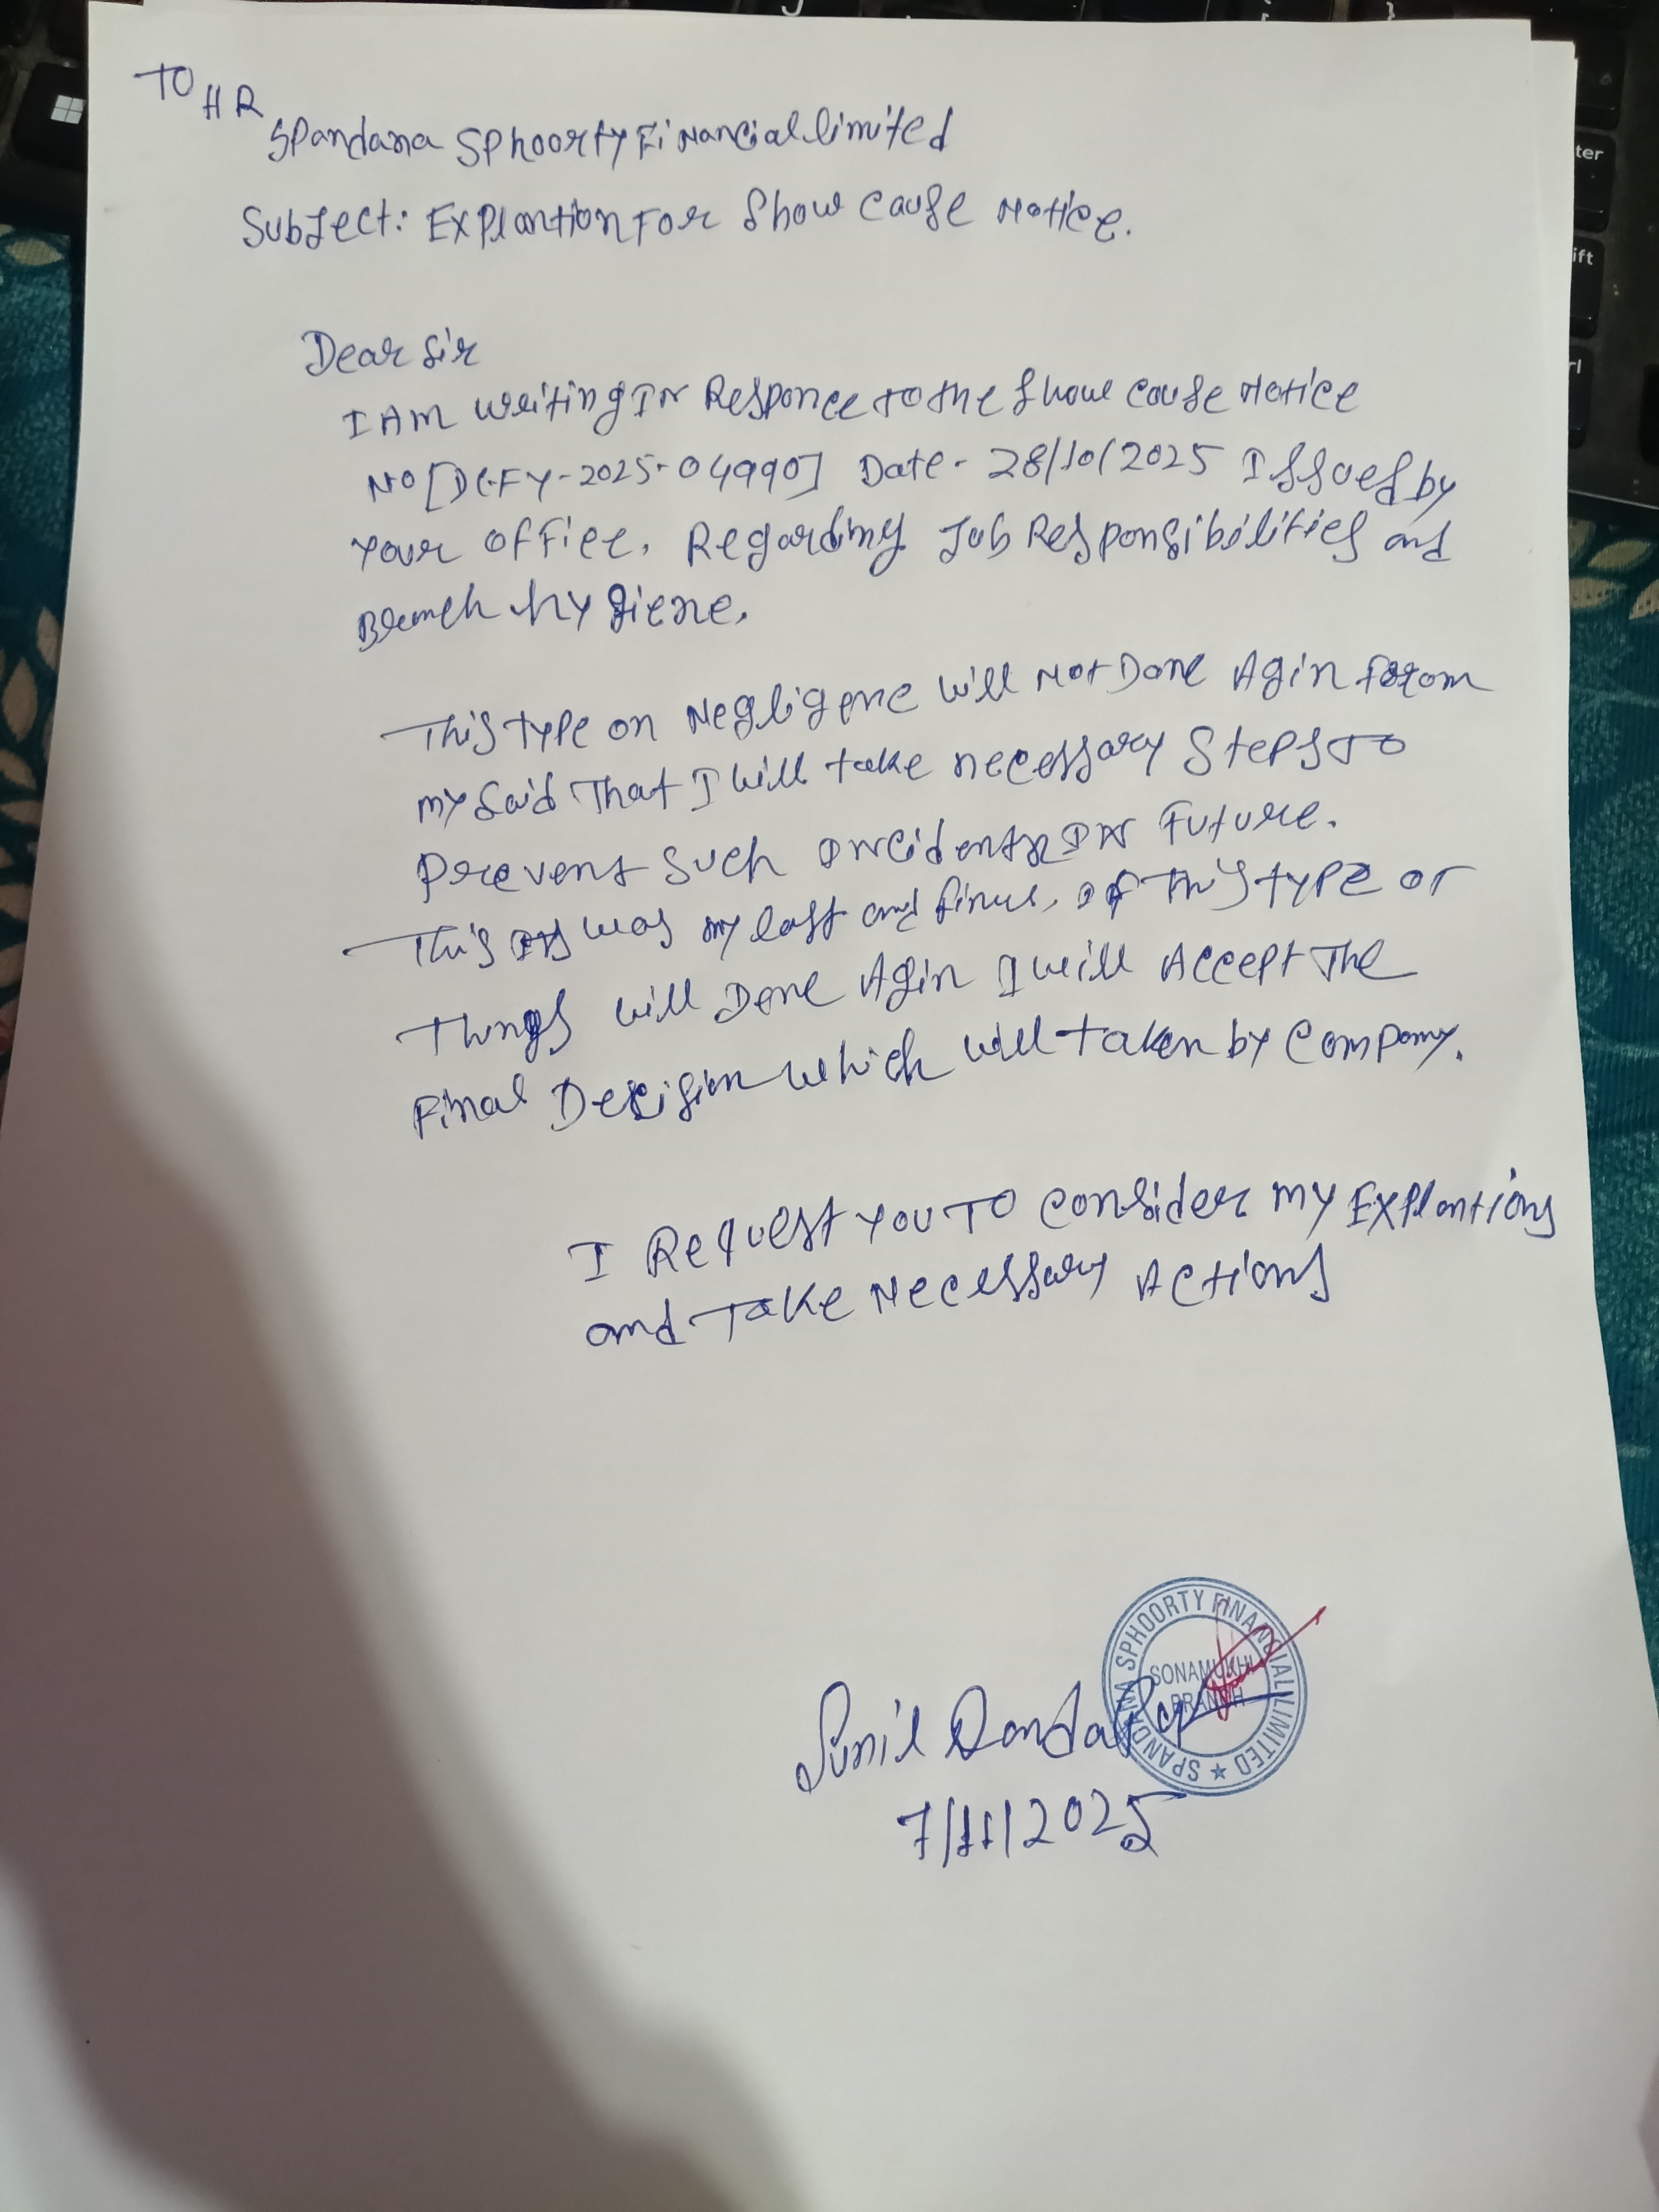 TO HR
Spandana Sphoorty Financial limited
Subject: Explantion For Show cause Notice.
Dear Sir
I AM writing In Responce to the Show cause Notice
NO [DC-FY-2025-04990] Date- 28/10/2025 Issued by
your office. Regarding Job Responsibilities and
Branch hygiene.
This type on Negligence will Not Done Agin from
my Said That I will take necessary Steps TO
prevent Such incidents IN Future.
This was my last and final, if This type or
Things will Done Agin I will Accept The
Final Decision which will taken by company.
I Request you TO consider my Explantions
and Take Necessary Actions
SPANDANA SPHOORTY FINANCIAL LIMITED ★
SONAMUKHI
BRANCH
Sunil
7/11/2025